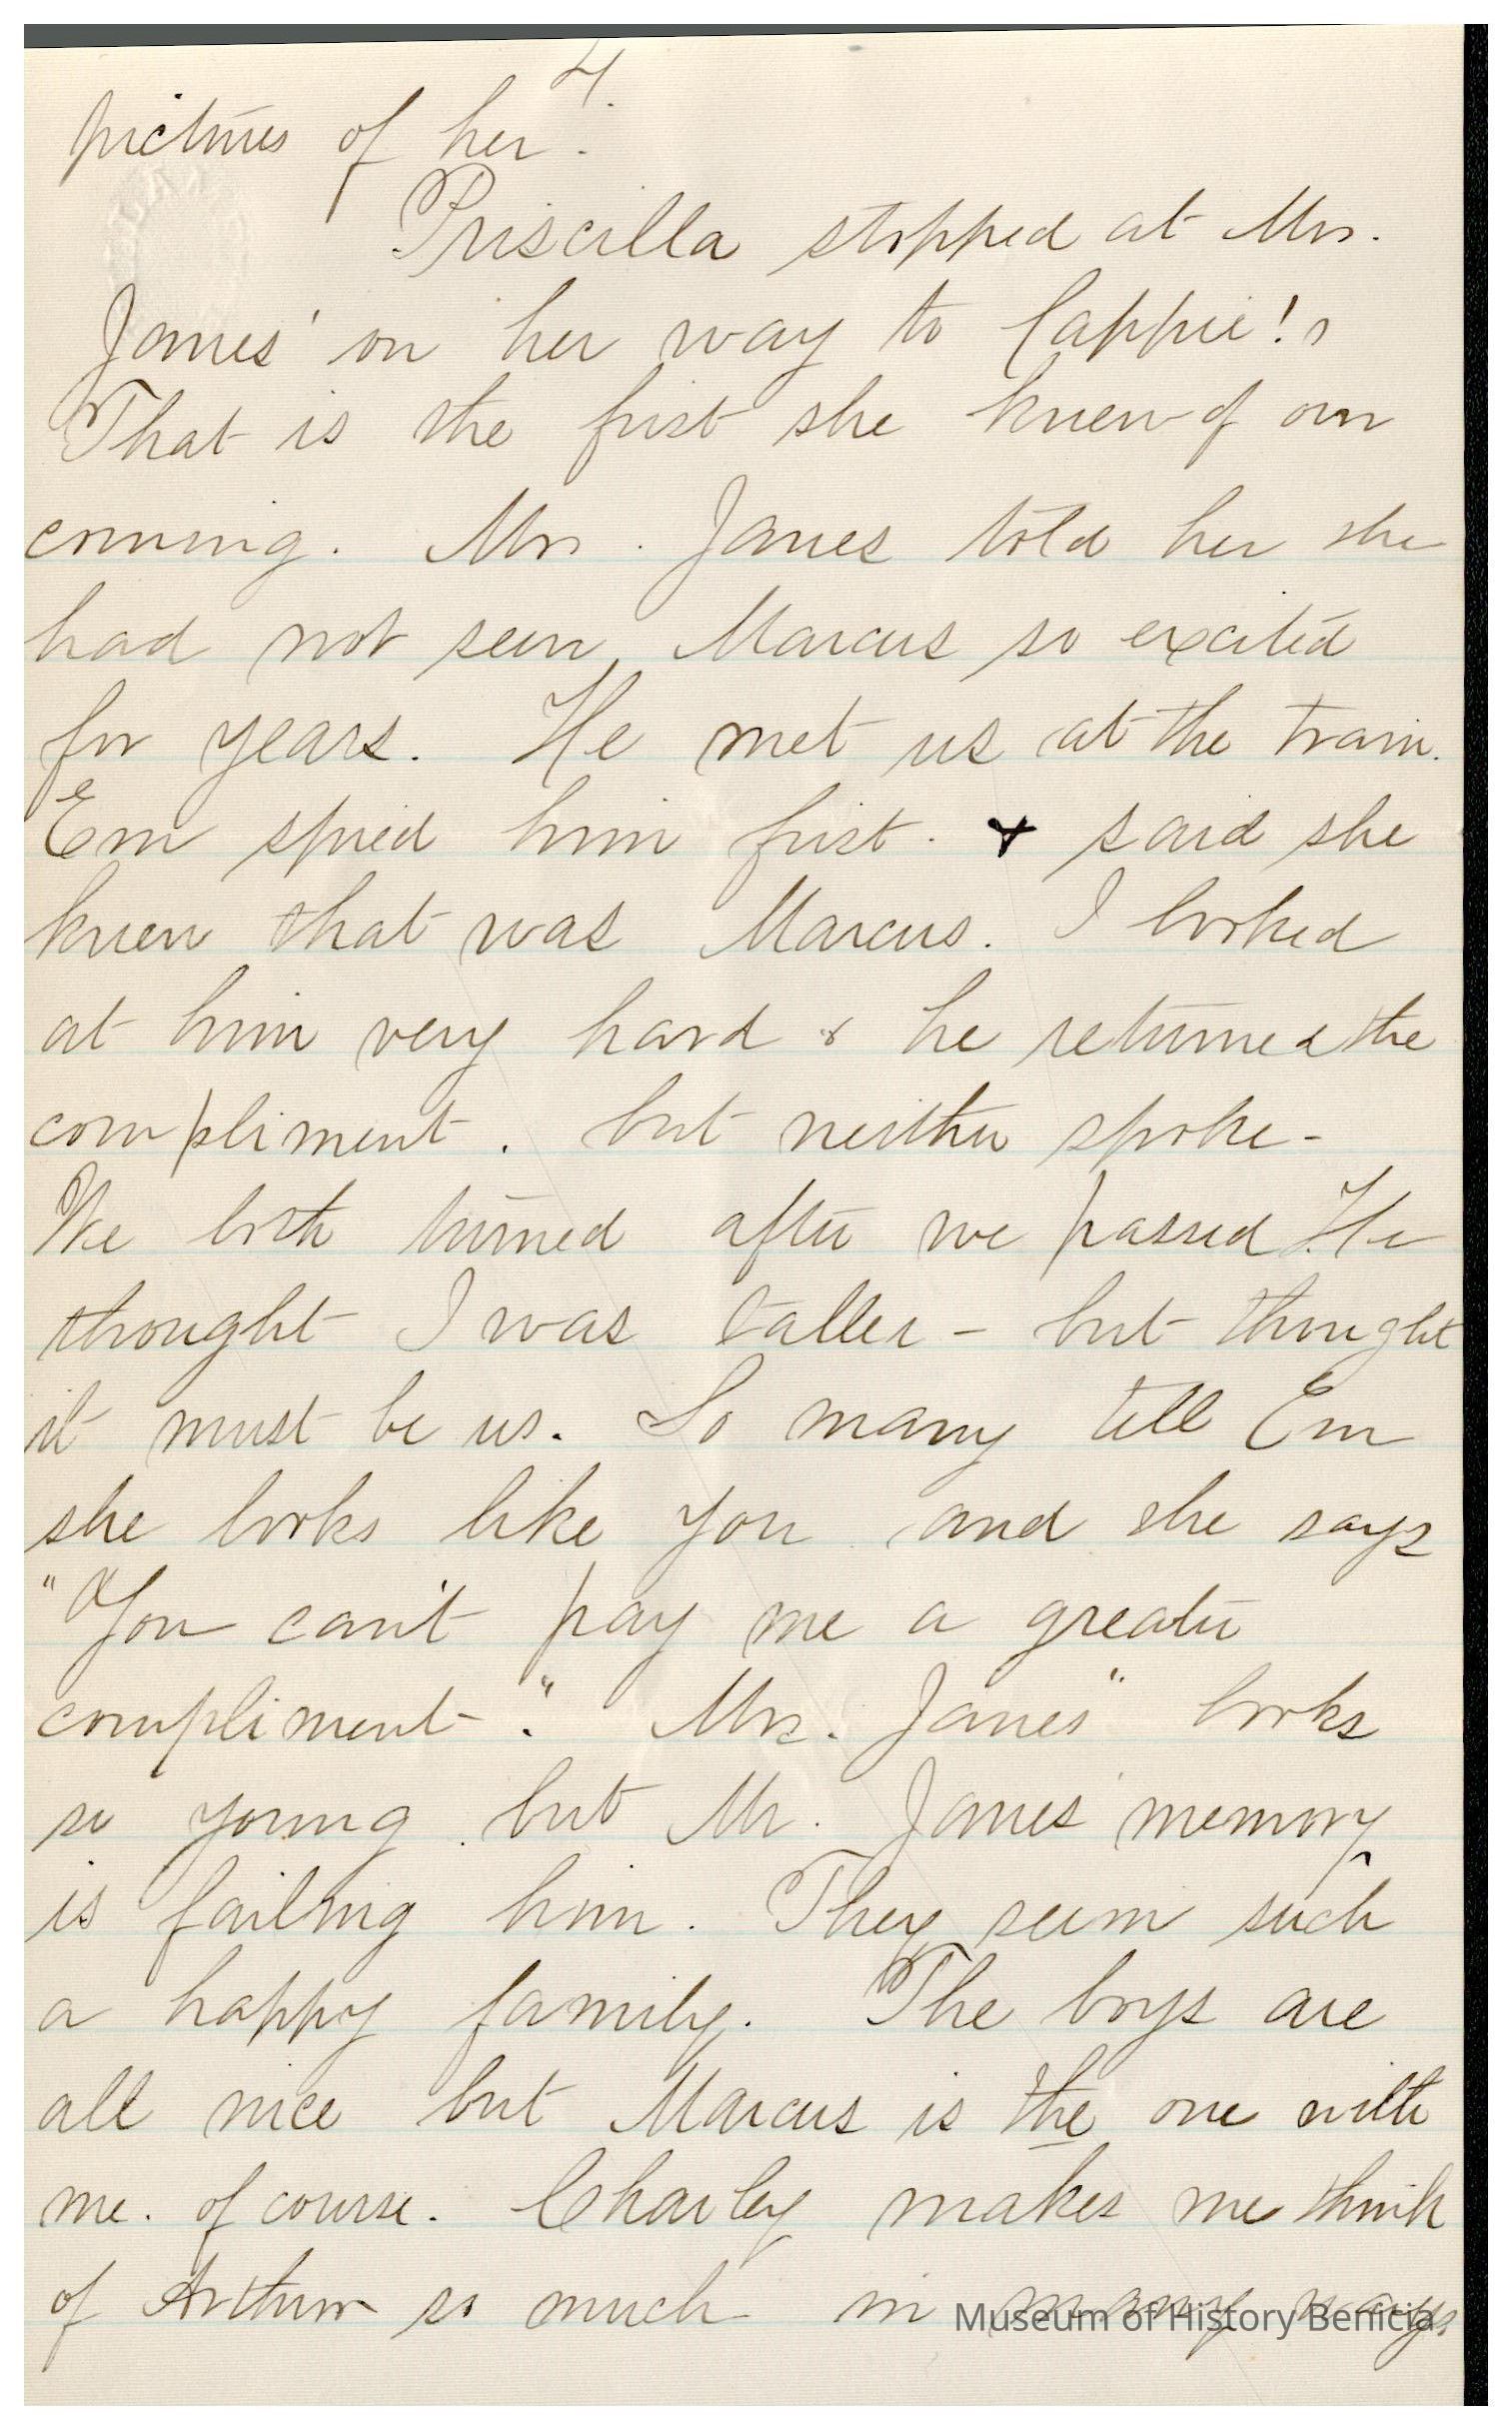 4.
pictures of her.
Priscilla stopped at Mrs.
James' on her way to Cappie's
That is the first she knew of our
coming. Mrs. James told her she
had not seen Marcus so excited
for years. He met us at the train.
Em spied him first. & said she
knew that was Marcus. I looked
at him very hard & he returned the
compliment. but neither spoke-
We both turned after we passed. He
thought I was taller - but thought
it must be us. So many tell Em
she looks like you and she says
"You can't pay me a greater
compliment." Mrs. James" looks
so young but Mr. James' memory
is failing him. They seem such
a happy family. The boys are
all nice but Marcus is the one with
me. of course. Charley makes me think
of Arthur so much in many ways
Museum of History Benicia